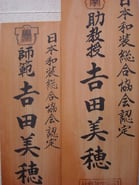 日本和装総合協会認定
助教授 吉田美穂
日本和装総合協会認定
師範 吉田美穂